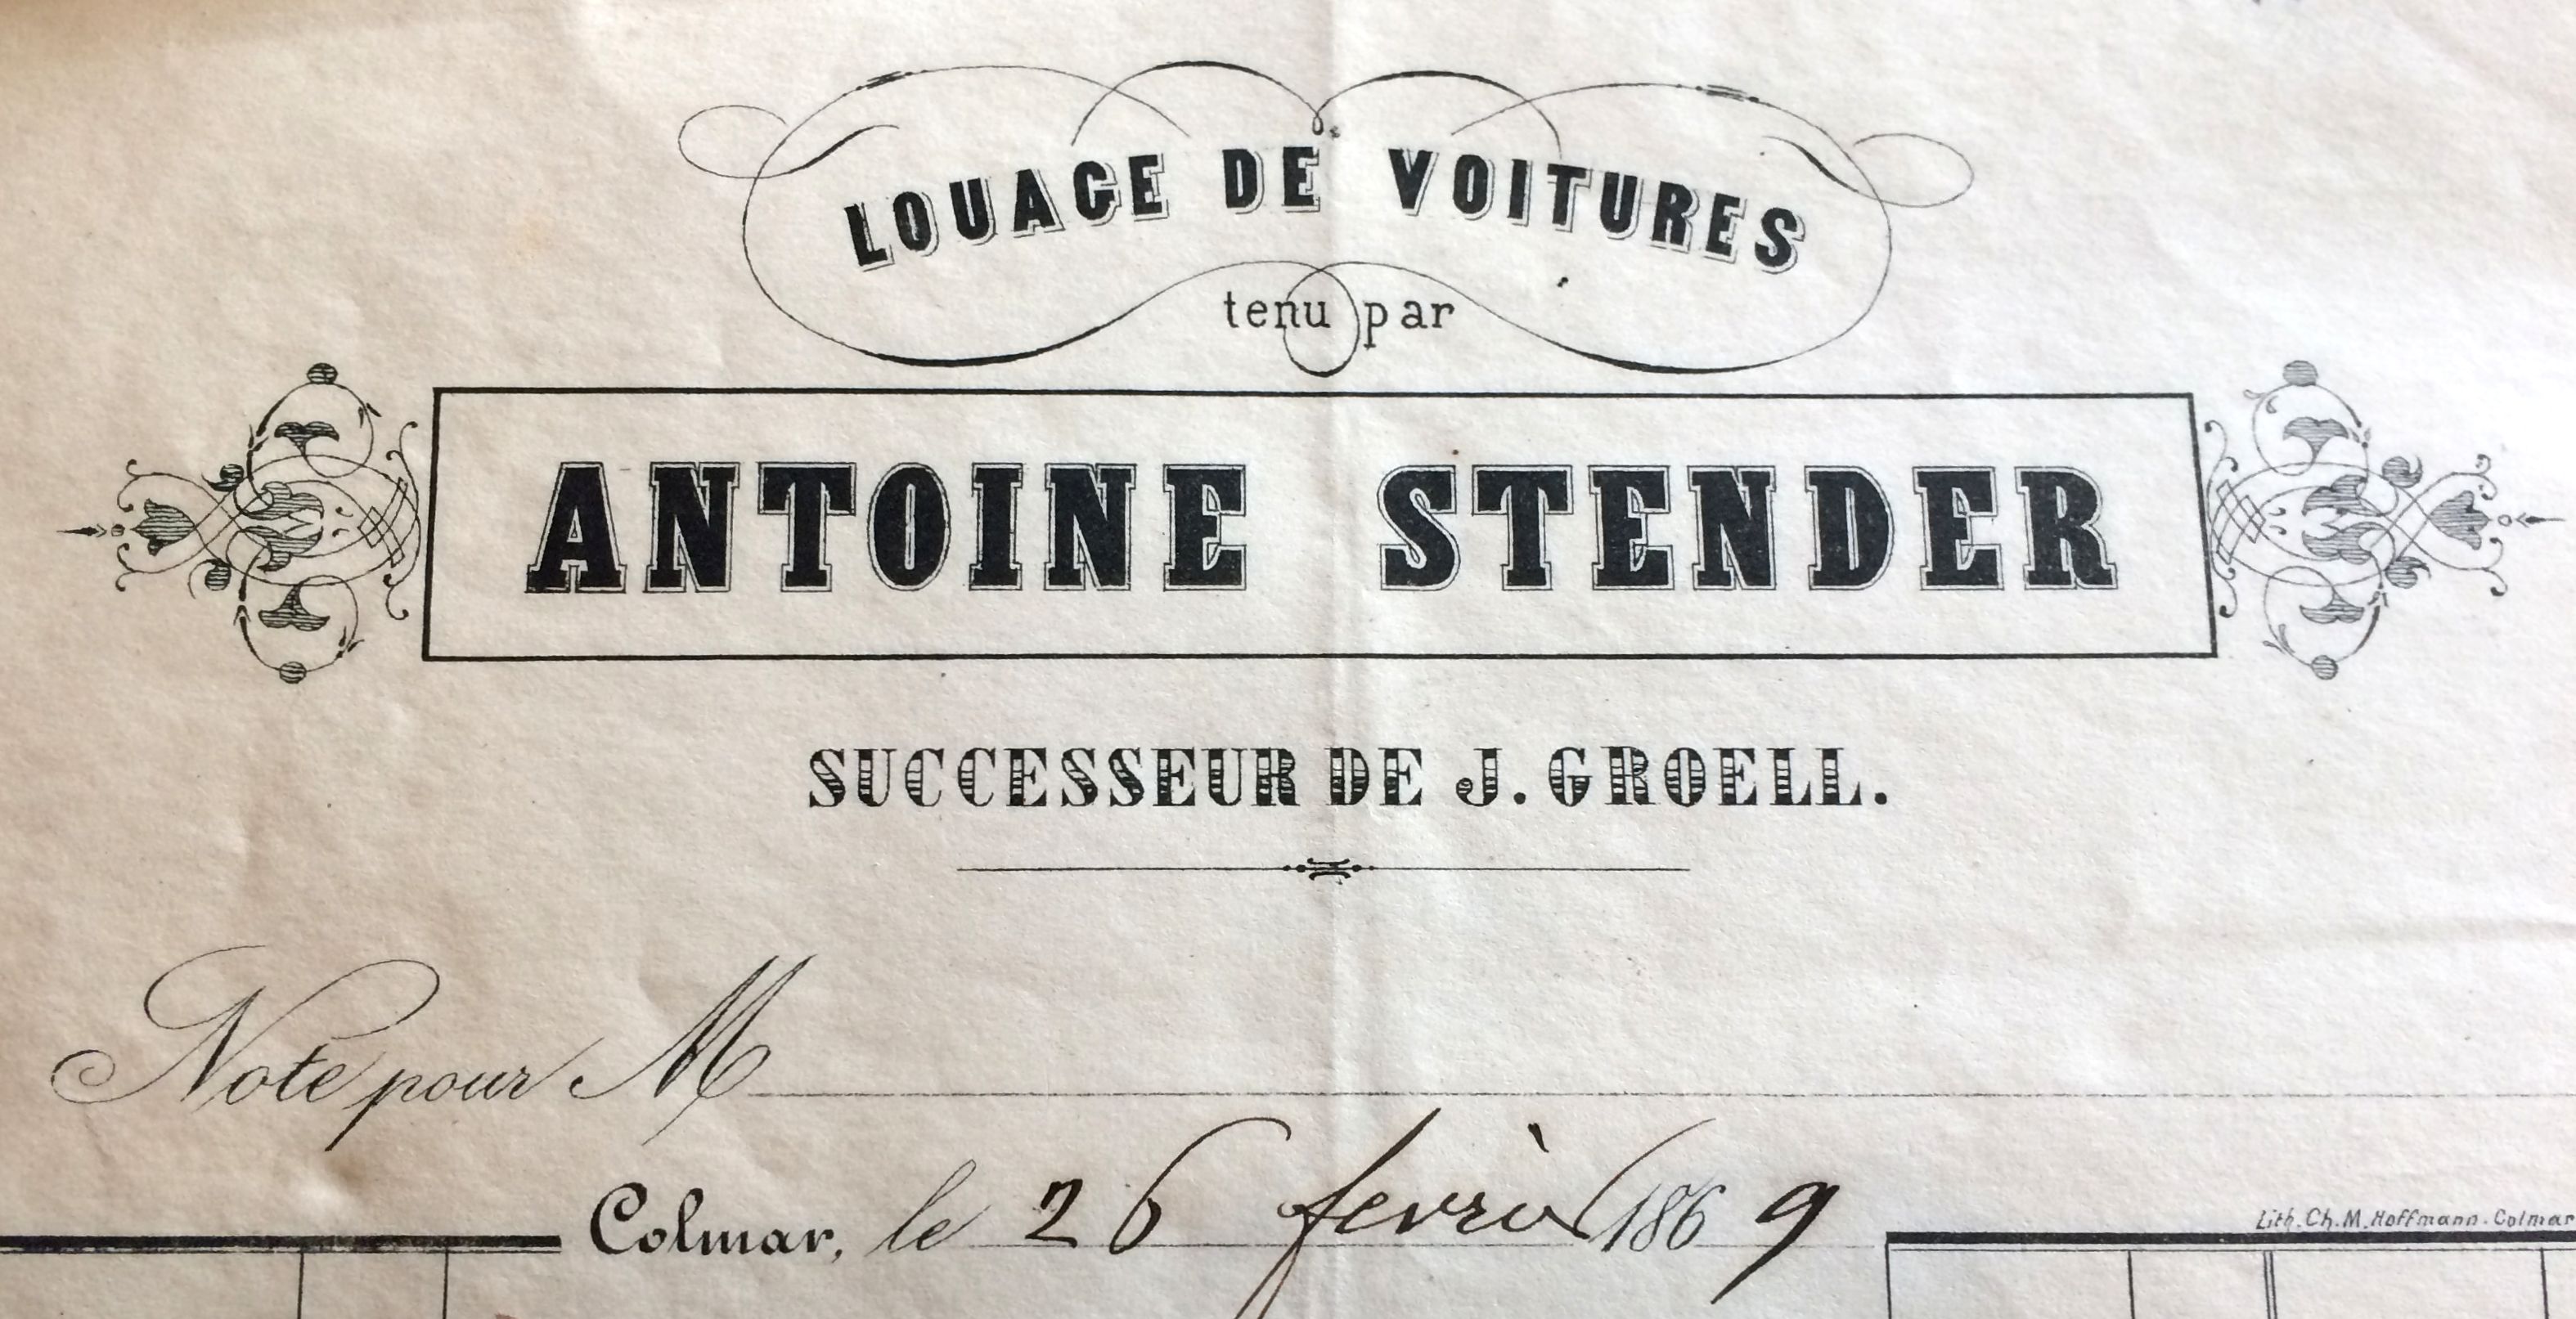 LOUAGE DE VOITURES
tenu par
ANTOINE STENDER
SUCCESSEUR DE J. GROELL.
Note pour M
Colmar, le 26 fevrièr 1869
Lith. Ch. M. Hoffmann. Colmar